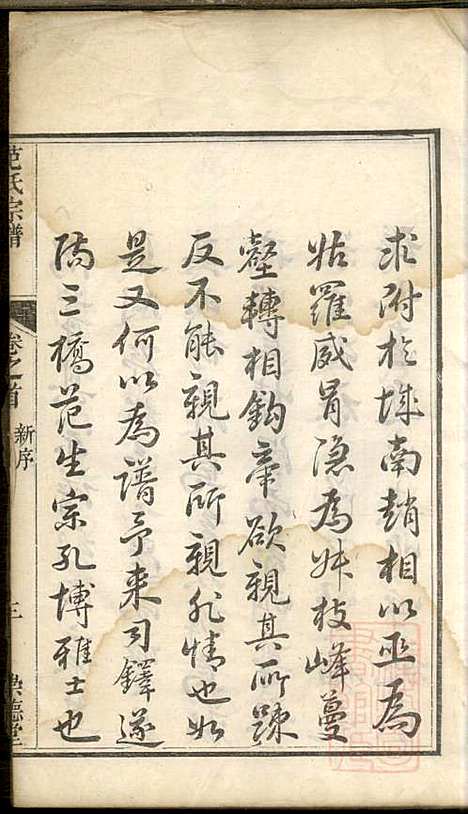 求附於城南趙相以巫為
姑羅威冒隱為妹枝峰蔓
壑轉相鈎牽欲親其所疎
反不能親其所親非情也如
是又何以為譜予来司鐸遂
陽三橋范生宗孔博雅士也
范氏宗譜
卷之首
新序
三
樂德堂